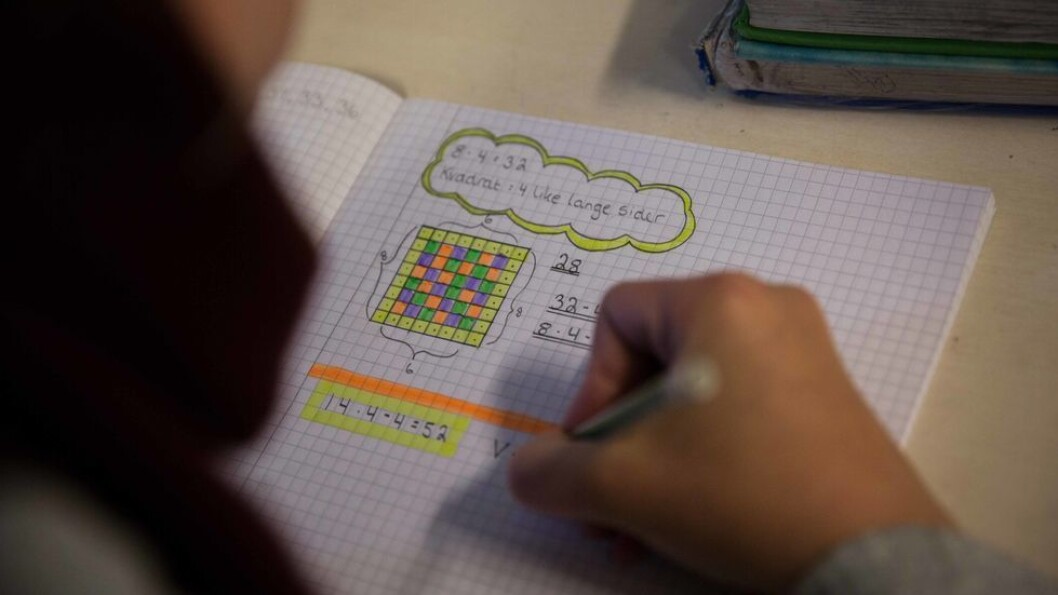 33, 36
8 · 4 = 32
Kvadrat = 4 like lange sider
6
8
8
6
28
32 -
8 · 4 -
14 · 4 - 4 = 52
V